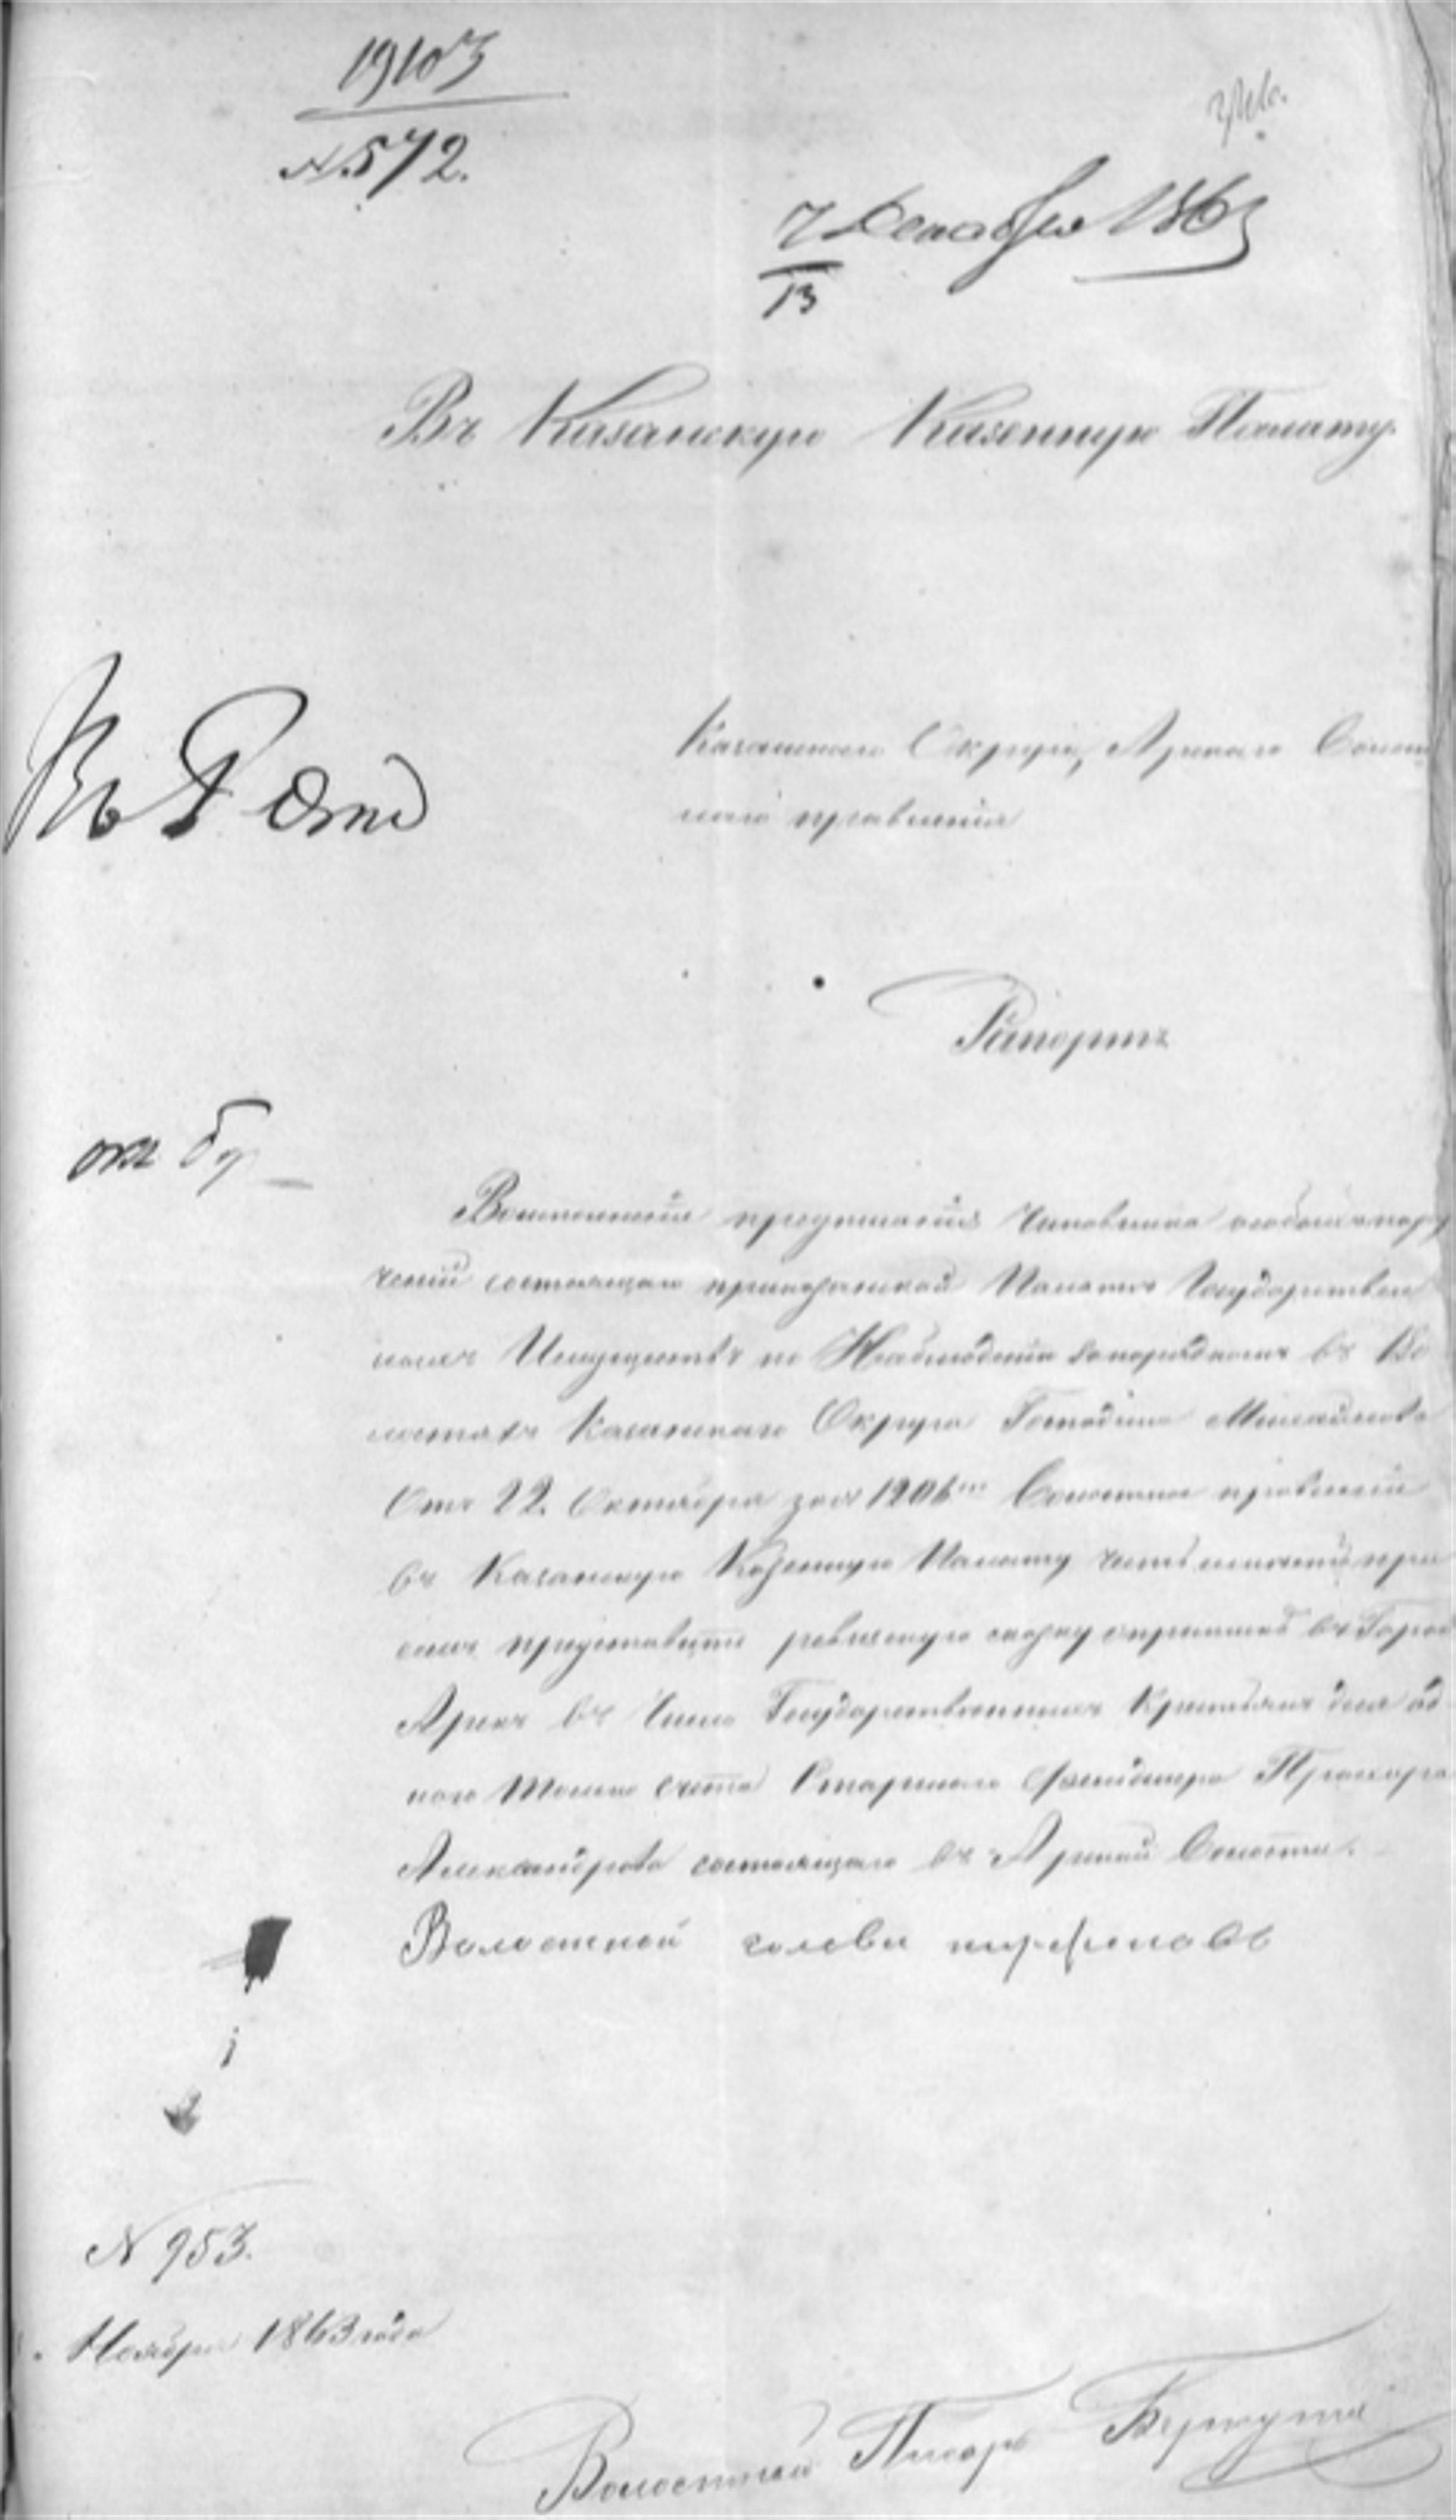 19103
№ 572.
7 Декабря 1863
13
Въ Казанскую Казенную Палату.
Казанскаго Округа, Арскаго Волост
наго правленія
Въ Р Отд
Рапортъ
Во исполненіе предписанія Чиновника особыхъ пору
ченій состоящаго при казанской Палатѣ Государствен
ныхъ Имуществъ по Наблюденію за порядкомъ въ Во
лостяхъ Казанскаго Округа Господина Михайлова
Отъ 22. Октября за № 1206мъ Волостное правленіе
въ Казанскую Казенную Палату честь имѣетъ при
семъ представить ревизскую сказку въ Городѣ
Арскѣ въ Число Государственныхъ Крестьянъ для од
ного только счета Старшаго Прохора
Александрова состоящаго въ Арской Волости.
Волостной голова
№ 953.
Ноября 1863 года
Волостной Писарь